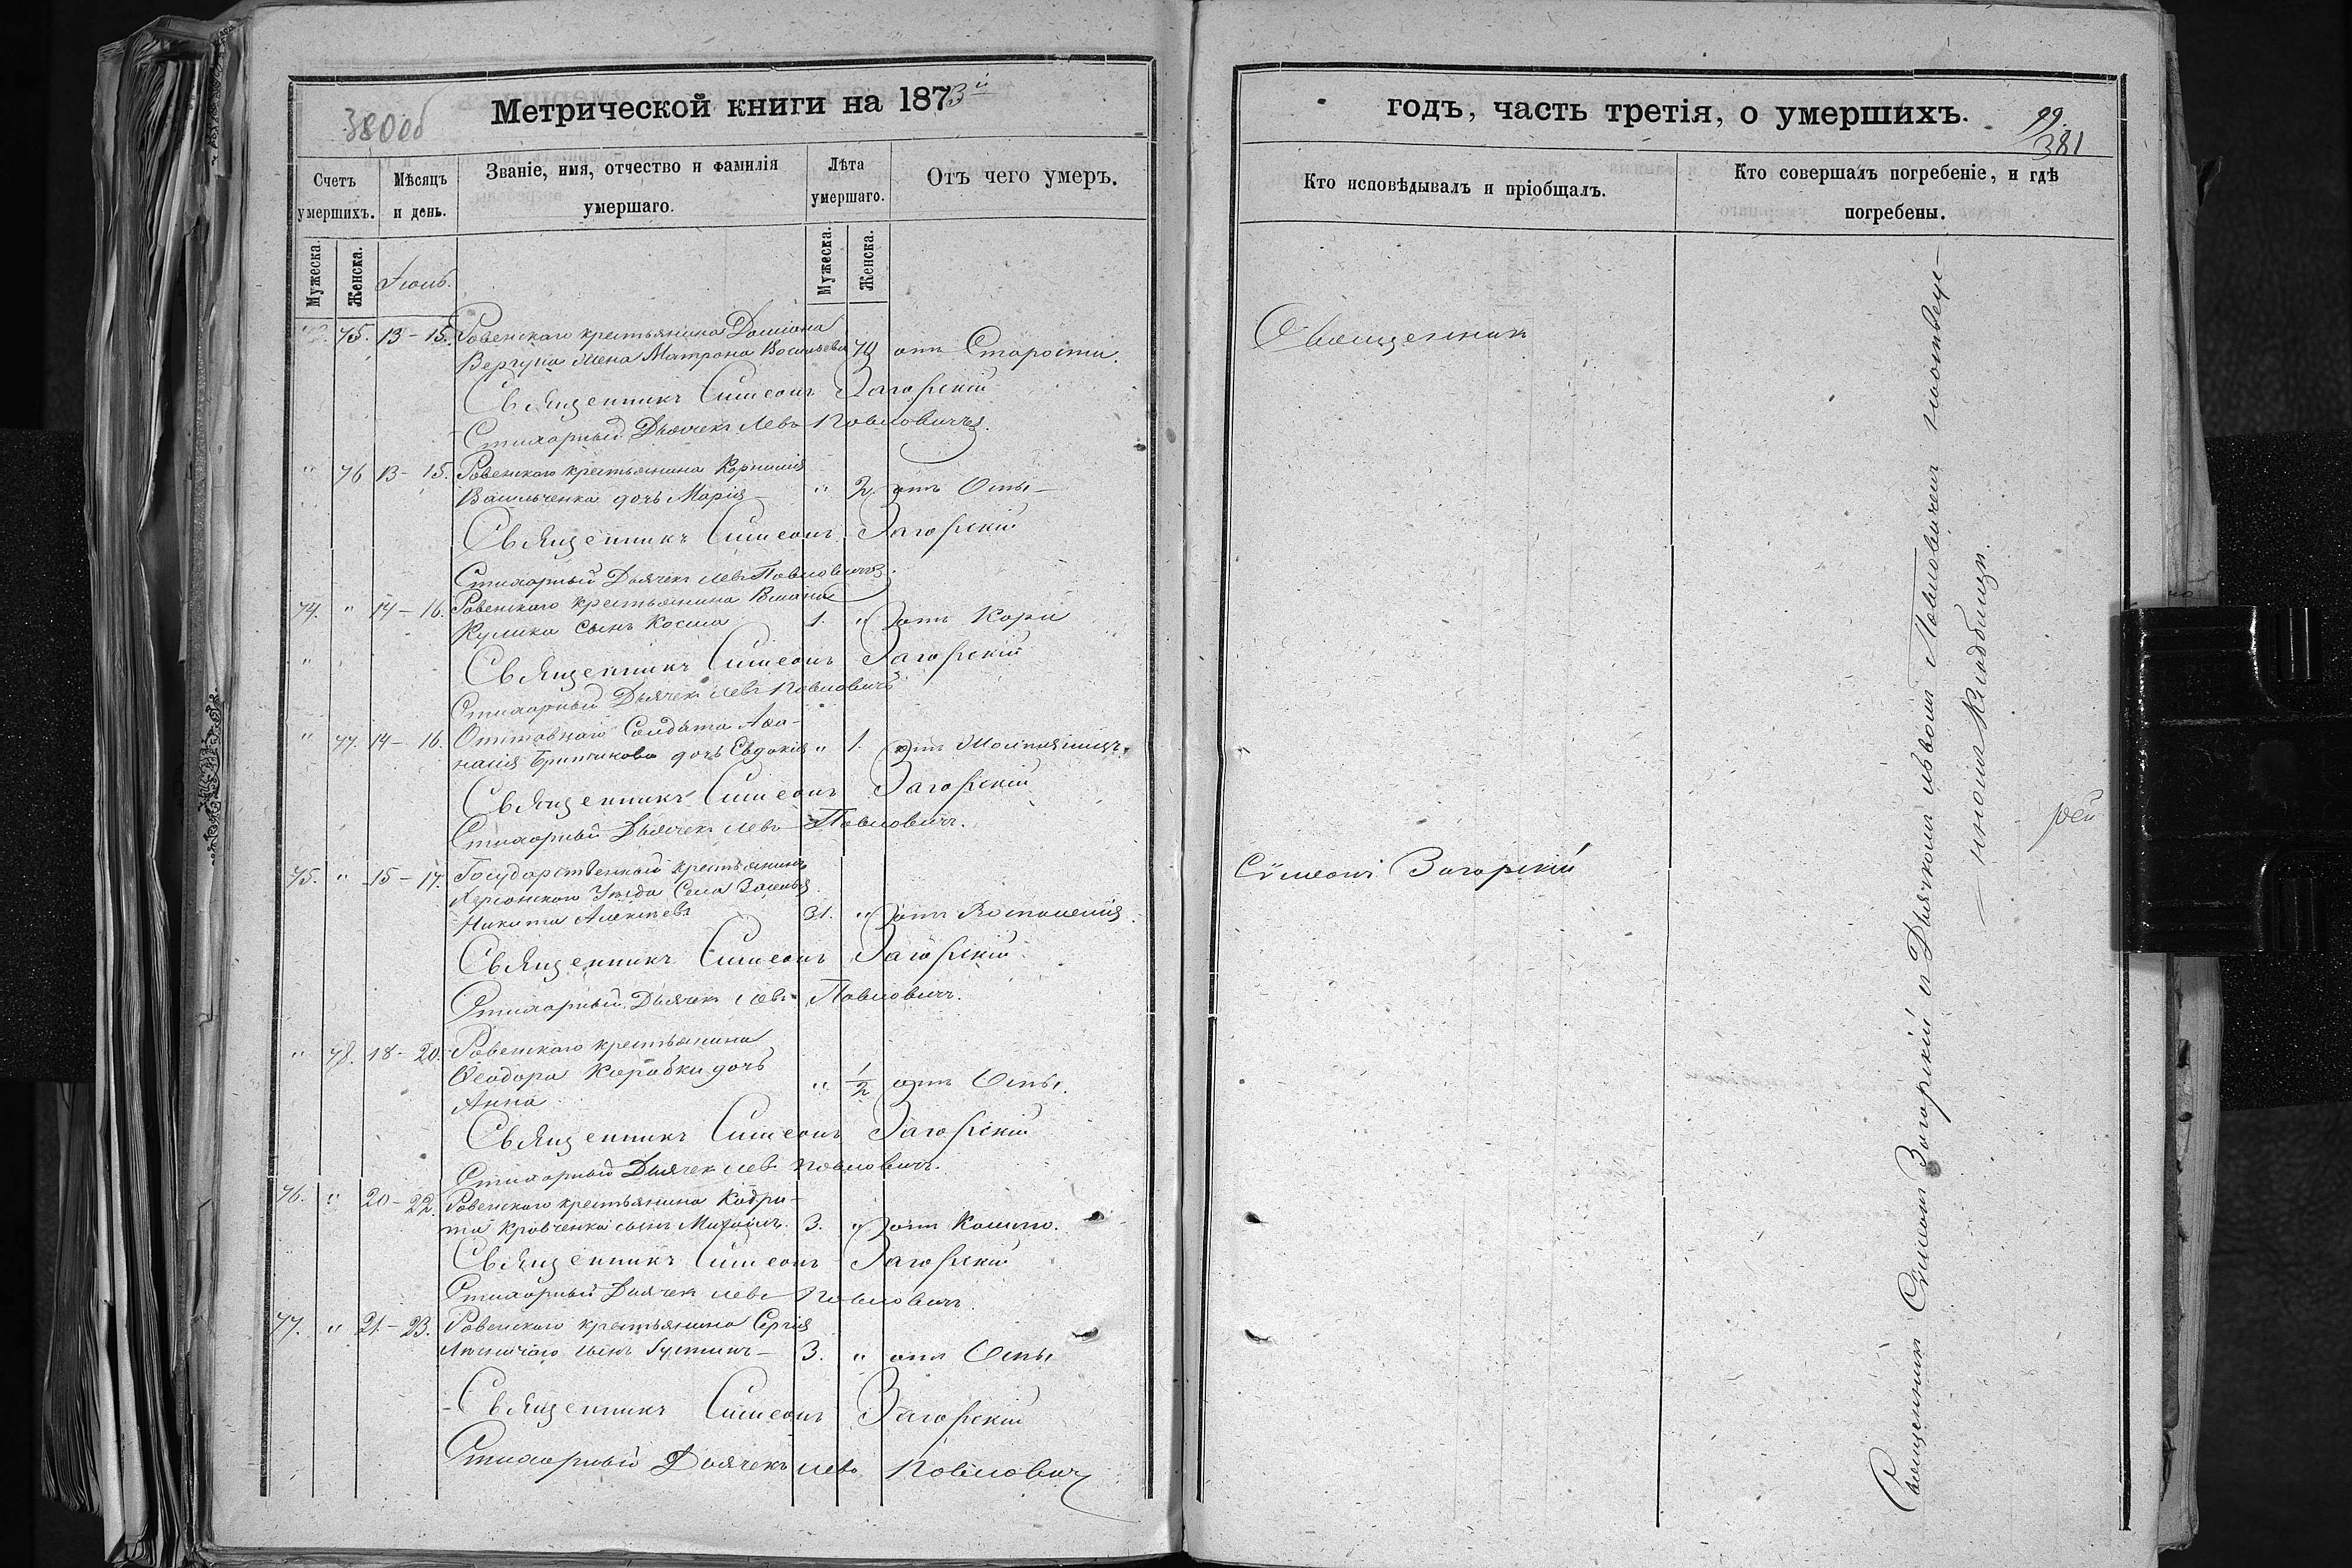 380об
Метрической книги на 1873й
Счетъ умершихъ.
Мѣсяцъ и день.
Званіе, имя, отчество и фамилія умершаго.
Лѣта умершаго.
Отъ чего умеръ.
Мужеска.
Женска.
Мужеска.
Женска.
Іюль.
75. 13-15. Ровенскаго крестьянина Даміана
Вергуна жена Матрона Васильева 70 отъ Старости.
Священникъ Симеонъ Загорскій
Стихарный Дьячекъ Левъ Павловичъ.
" 76 13-15. Ровенскаго крестьянина Корнилія
Васильченка дочь Марія " 2. отъ Оспы
Священникъ Симеонъ Загорскій
Стихарный Дьячекъ Левъ Павловичъ.
74. " 14-16. Ровенскаго крестьянина
Кулика сынъ Косма 1. " отъ Кори
" Священникъ Симеонъ Загорскій
Стихарный Дьячекъ Левъ Павловичъ
" 77. 14-16. Солдата Афа-
насія дочь Евдокія " 1. отъ
Священникъ Симеонъ Загорскій
Стихарный Дьячекъ Левъ Павловичъ.
75. " 15-17. Государственный крестьянинъ
Херсонскаго Уѣзда Села
Никита Алексѣевъ 31. " отъ
Священникъ Симеонъ Загорскій
Стихарный Дьячекъ Левъ Павловичъ.
" 78. 18-20. Ровенскаго крестьянина
Ѳеодора Коробки дочь
Анна " 1/2 отъ Оспы.
Священникъ Симеонъ Загорскій
Стихарный Дьячекъ Левъ Павловичъ.
76. " 20-22. Ровенскаго крестьянина Кодра-
та Кравченка сынъ Михаилъ. 3. " отъ Кашлю.
Священникъ Симеонъ Загорскій
Стихарный Дьячекъ Левъ Павловичъ.
77. " 21-23. Ровенскаго крестьянина Сергія
сынъ Іустинъ 3. " отъ Оспы
Священникъ Симеонъ Загорскій
Стихарный Дьячекъ Левъ Павловичъ
годъ, часть третія, о умершихъ.
99.
381
Кто исповѣдывалъ и пріобщалъ.
Кто совершалъ погребеніе, и гдѣ погребены.
Священникъ
Сѵмеонъ Загорскій
Священникъ Сѵмеонъ Загорскій съ Дьячкомъ Львомъ Павловичемъ
кладбищѣ.